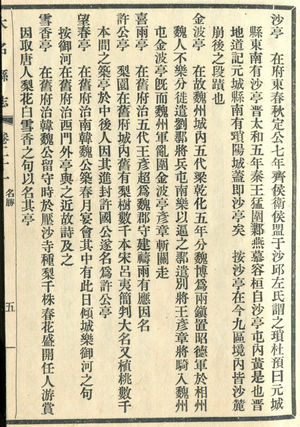 沙亭　在府東春秋定公七年齊侯衛侯盟于沙邱左氏謂之瑣杜預曰元城
縣東南有沙亭晉太和五年秦王猛圍鄴燕慕容桓自沙亭屯內黃是也晉
地道記元城縣南有瑣陽城蓋即沙亭矣　按沙亭在今九區境內皆沙麓
崩後之段蹟也
金波亭　在故魏州城內五代梁乾化五年分魏博為兩鎮置昭德軍於相州
魏人不樂分徒遣劉鄩將兵屯南樂以逼之鄩遣別將王彥章將騎入魏州
屯金波亭既而魏州軍亂圍金波亭彥章斬關走
喜雨亭　在舊府治五代王彥超為魏郡守建禱雨有應因名
許公亭　梨園在舊府治舊有梨樹數千本宋呂夷簡判大名又植桃數千
本間之築亭於中後人因其進封許國公遂名為許公亭
望春亭　在舊府治南韓魏公築春月宴會其中有此日傾城樂御河之句
按御河在舊府治西門外亭與之近故詩及之
雪香亭　在舊府治韓魏公留守時於壓沙寺種梨千株春花盛開任人游賞
因取唐人梨花白雪香之句以名其亭
大名縣志
卷二十
名勝
五